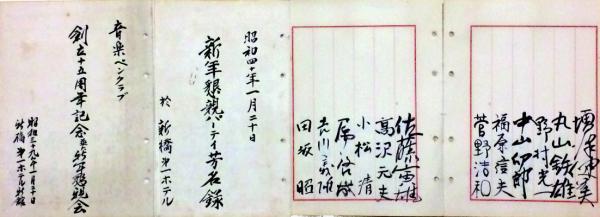 丸山鉄雄
野村光一
中山卯郎
福原信夫
菅野浩和
高沢元夫
小松清
属啓成
吉川義雄
田坂昭
昭和四十年一月二十日
新年懇親パーティ芳名録
於 新橋第一ホテル
音楽ペンクラブ
創立十五周年記念会並に新年懇親会
昭和三十九年一月二十日
新橋第一ホテル新館